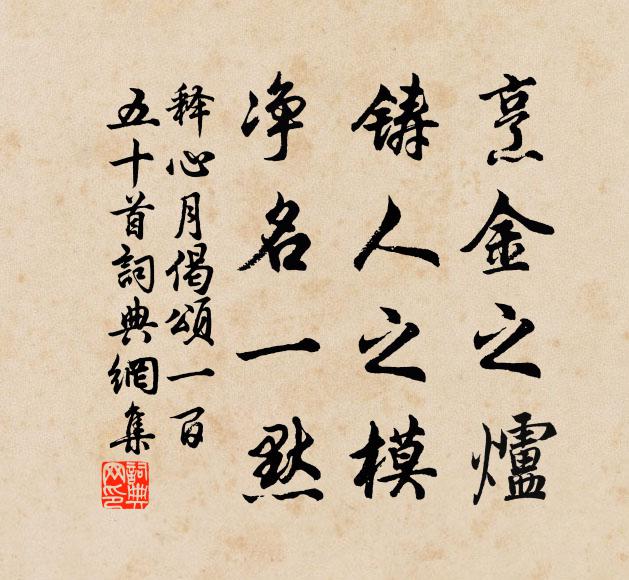 烹金之爐
铸人之模
净名一默
释心月偈頌一百
五十首詞典網集
詞典网印